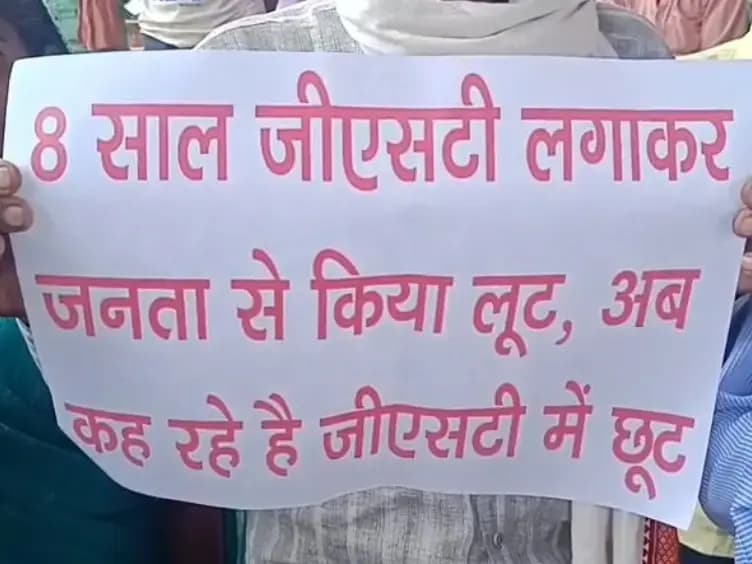 8 साल जीएसटी लगाकर
जनता से किया लूट, अब
कह रहे है जीएसटी में छूट